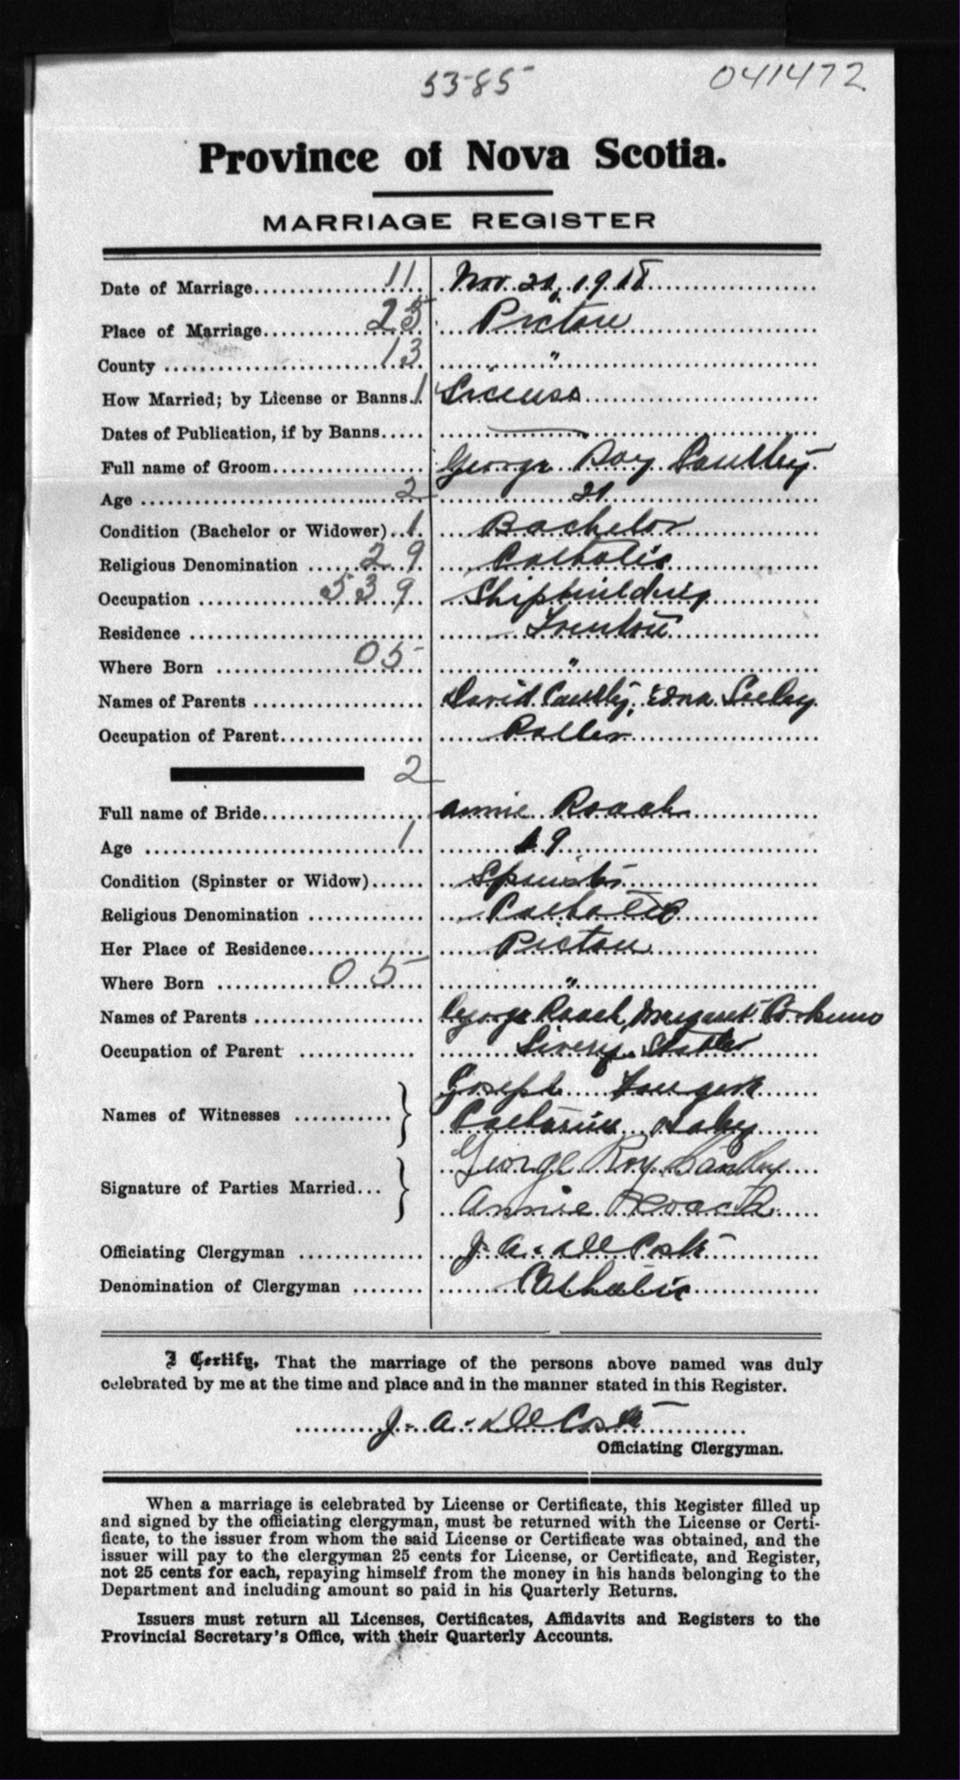 5385
041472
Province of Nova Scotia.
MARRIAGE REGISTER
Date of Marriage 11 Nov. 21, 1918
Place of Marriage 25 Pictou
County 13 "
How Married; by License or Banns. 1 License
Dates of Publication, if by Banns
Full name of Groom George Roy Cantley
Age 2 21
Condition (Bachelor or Widower) 1 Bachelor
Religious Denomination 29 Catholic
Occupation 539 Shipbuilding
Residence Trenton
Where Born 05 "
Names of Parents David Cantley, Edna Seeley
Occupation of Parent Roller
2
Full name of Bride Annie Roach
Age 1 19
Condition (Spinster or Widow) Spinster
Religious Denomination Catholic
Her Place of Residence Pictou
Where Born 05 "
Names of Parents George Roach, Margaret
Occupation of Parent Livery Stabler
Names of Witnesses } Joseph
Catherine
Signature of Parties Married... } George Roy Cantley
Annie Roach
Officiating Clergyman J. A. DeCoste
Denomination of Clergyman Catholic
I Certify, That the marriage of the persons above named was duly
celebrated by me at the time and place and in the manner stated in this Register.
J. A. DeCoste
Officiating Clergyman.
When a marriage is celebrated by License or Certificate, this Register filled up
and signed by the officiating clergyman, must be returned with the License or Certi-
ficate, to the issuer from whom the said License or Certificate was obtained, and the
issuer will pay to the clergyman 25 cents for License, or Certificate, and Register,
not 25 cents for each, repaying himself from the money in his hands belonging to the
Department and including amount so paid in his Quarterly Returns.
Issuers must return all Licenses, Certificates, Affidavits and Registers to the
Provincial Secretary's Office, with their Quarterly Accounts.